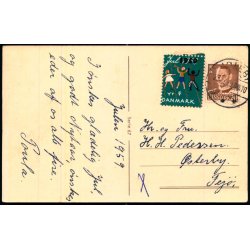 Jul 1959
DANMARK
DANMARK
Julen 1959
I ønskes glædelig Jul,
og godt Nytaar, ønskes
eder af os alle fire.
Paula.
Serie 67
Hr. og Fru
H. H. Pedersen
Østerby.
Fejø.